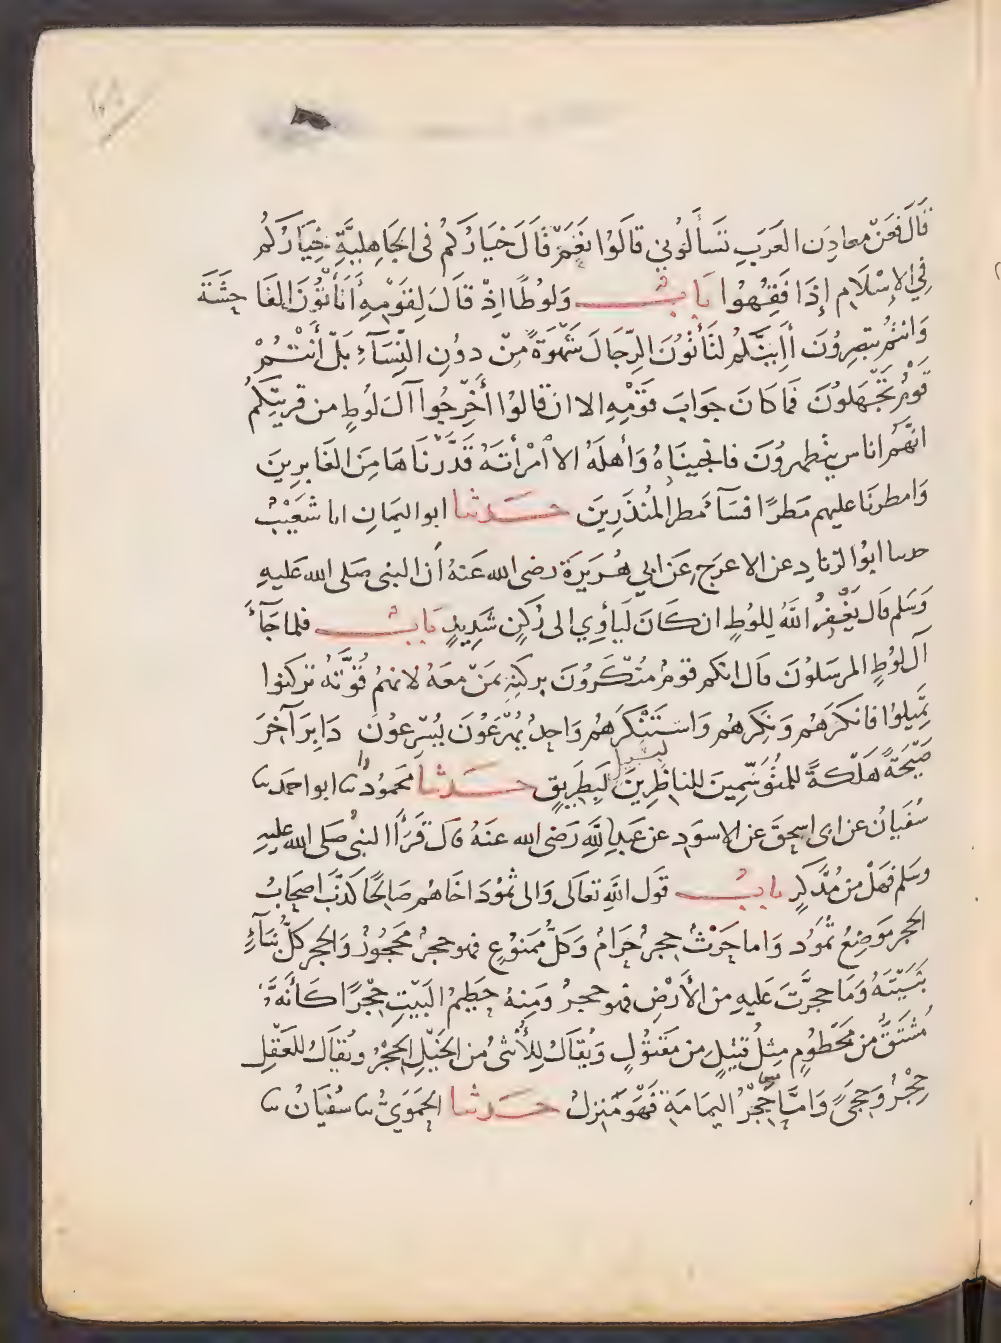 ١٠١
قَالَ فَعَنْ معادِن العَرَبِ تَسَألُوني قالوا نَعَمْ قَالَ خيَارُكُم فى الجَاهِليَّةِ خِيَارُكُم
فِي الاِسْلَامِ إِذَا فَقِهُوا بَابٌ وَلُوطًا اِذْ قالَ لِقَوْمِهِ أَتَأتُونَ الفَاحِشَةَ
وَانتُمْ تبصِرُونَ أَاِينَّكُم لتَأتُونَ الرِّجَالَ شَهْوَةً مِنْ دوُنِ النِّسَآءِ بَلْ أَنتُمْ
قَوْمٌ تَجْهَلُونَ فَمَا كانَ جوَابَ قَوْمِهِ الا ان قالوُا أَخْرِجُوا آلَ لوُطٍ من قريتِكُمْ
انَّهُم اناس يتطهرُونَ فانجينَاهُ وَأَهلَهُ الا امْرأَتَهُ قَدَّرْنَاهَا مِنَ الغَابرِينَ
وَامطرنَا عليهم مَطَرًا فسَآءَ مطر المُنذَرِينَ حَدثنا ابو اليمَانِ انا شعَيْبٌ
حدىىا ابوُ الزنادِ عن الاعرَجِ عَن ابي هُرَيرَةَ رضى الله عَنهُ أن النبى صَلى الله عَليهِ
وَسَلم قال يَغْفِرُ اللهُ لِلوُطٍ ان كَانَ لَيَأوِي الى رُكنٍ شَدِيدٍ بَابٌ فلما جَآءَ
آلَ لوُطٍ المرسَلوُنَ قال انكم قومٌ مُنْكَرُونَ بركنِهِ بمَنْ معَهُ لانهمْ قُوَّتهُ تركَنوا
تَمِيلوُا فانكرَهُم وَنكِرهُم وَاسْتَنكَرَهُم وَاحِدٌ يُهْرَعُونَ يُسْرِعُونَ دَابِرَ آخِرَ
صَيْحَةً هَلكةً للمتُوَسِّمِينَ للناظِرِينَ لَبِطَرِيقٍ حَدثنا محمُودٌ ثنا ابو احمَد ثنا
سُفيَانُ عن ابى اسحقَ عن الاسوَدِ عن عَبدِاللهِ رَضى الله عنهُ قال قَرَأَ النبىُ صَلى الله عَليهِ
وسَلم فهَلْ من مُدَّكِرٍ بَابٌ قَول اللهِ تعالى وَالى ثمُودَ اخَاهُم صَالحًا كذَّبَ اصحَابُ
الحجر مَوضِعُ ثمُودَ وَاما حَرْثٌ حِجرٌ حرَامٌ وَكلُ ممَنوُعٍ فهو حجرٌ محجُورٌ وَالحجر كلُّ بنَآءٍ
بَنَيْتَهُ وَمَا حجرَّتَ عَليهِ من الأَرْضِ فهو حجرٌ وَمِنهُ حَطِيمُ البَيْتِ حِجْرًا كَأنَهُ
مُشتَقٌّ من مَحْطُومٍ مِثلُ قتيْلٍ مِن مَقتُولٍ وَيُقالُ لِلأُنثىَ من الخَيْلِ الحِجْرُ ويُقالُ للعَقْلِ
حِجْرٌ وَحِجىً وَامَّا حَجْرُ اليمَامَةِ فَهُوَ مَنزِلٌ حَدثنا الحمَوِيُّ ثنا سُفيَانُ ثنا